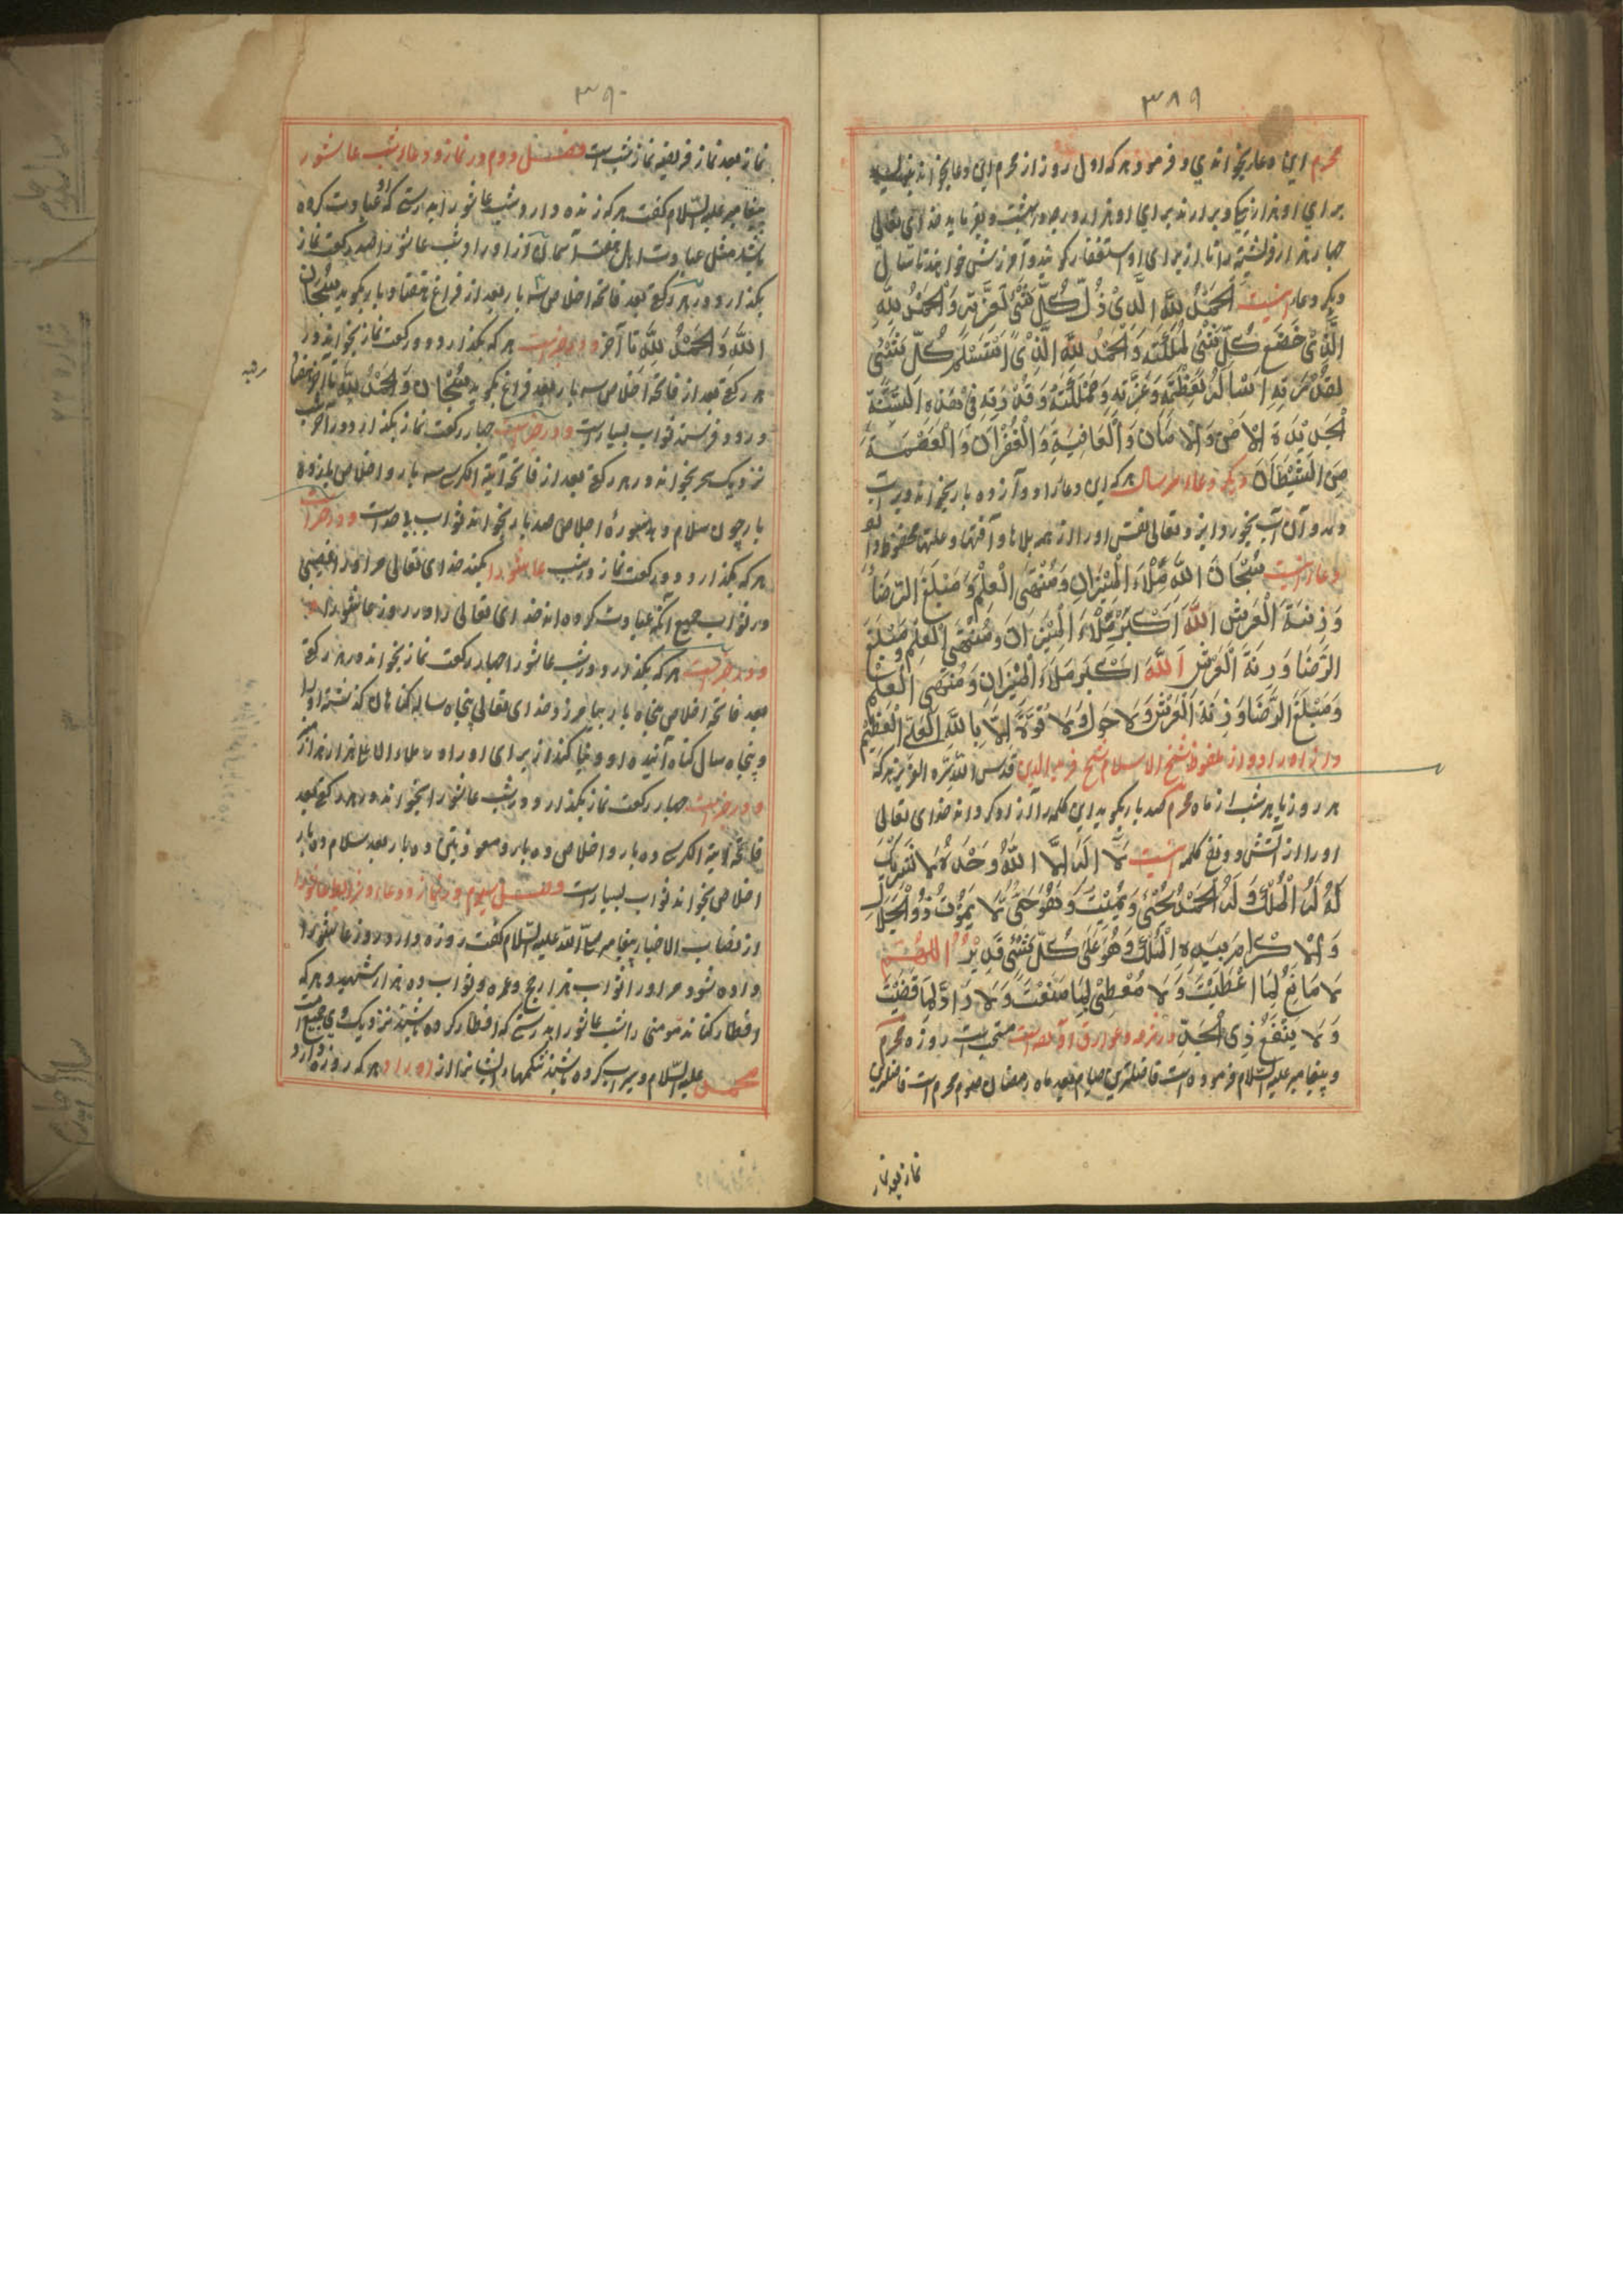 ٣٨٩
محرم این دعا بخواندی و فرمود هر که اول روز از محرم این دعا بخواند
برای او هزار نیکی و بردارند برای او هزار و در بهشت و بفرماید خدای تعالی
چهار هزار فرشته را تا از برای او استغفار کویند و آمرزش خواهند تا سال
دیکر دعا اینست اَلْحَمْدُ لِلّٰهِ الَّذِیْ ذَلَّ كُلُّ شَیْءٍ لِعِزَّتِهِ وَالْحَمْدُ لِلّٰهِ
الَّذِیْ خَضَعَ كُلُّ شَیْءٍ لِمُلْكِهِ وَالْحَمْدُ لِلّٰهِ الَّذِیْ اسْتَسْلَمَ كُلُّ شَیْءٍ
لِقُدْرَتِهِ اَسْأَلُهُ بِعَظَمَتِهِ وَعِزَّتِهِ وَ وَقُدْرَتِهِ فِیْ هٰذِهِ السَّنَةِ
الْجَدِیْدَةِ الْاَمْنَ وَالْاَمَانَ وَالْعَافِیَةَ وَالْغُفْرَانَ وَالْعِصْمَةَ
مِنَ الشَّیْطَانِ دیکر دعاء هر سال هر که این دعا را دوازده بار بخواند و بر آب
دمد و آن آب بخورد ایزد تعالی نفس او را از همه بلاها و آفتها و علتها محفوظ دارد
دعا اینست سُبْحَانَ اللّٰهِ مِلْاَءَ الْمِیْزَانِ وَمُنْتَهَی الْعِلْمِ وَمَبْلَغَ الرِّضَا
وَزِنَةَ الْعَرْشِ اَللّٰهُ اَكْبَرُ مِلْاَءَ الْمِیْزَانِ وَمُنْتَهَی الْعِلْمِ وَمَبْلَغَ
الرِّضَا وَزِنَةَ الْعَرْشِ اَللّٰهُ اَكْبَرُ مِلْاَءَ الْمِیْزَانِ وَمُنْتَهَی الْعِلْمِ
وَمَبْلَغَ الرِّضَا وَزِنَةَ الْعَرْشِ وَلَا حَوْلَ وَلَا قُوَّةَ اِلَّا بِاللّٰهِ الْعَلِیِّ الْعَظِیْمِ
و از اوراد و از ملفوظ شیخ الاسلام شیخ فرید الدین قدس الله سره العزیز هر که
هر روز یا هر شب از ماه محرم صد بار بکوید این کلمه را آزاد کرداند خدای تعالی
او را از آتش دوزخ کلمه اینست لَا اِلٰهَ اِلَّا اللّٰهُ وَحْدَهُ لَا شَرِیْكَ
لَهُ لَهُ الْمُلْكُ وَلَهُ الْحَمْدُ یُحْیِیْ وَیُمِیْتُ وَهُوَ حَیٌّ لَا یَمُوْتُ ذُو الْجَلَالِ
وَالْاِكْرَامِ بِیَدِهِ الْمُلْكُ وَهُوَ عَلٰی كُلِّ شَیْءٍ قَدِیْرٌ اَللّٰهُمَّ
لَا مَانِعَ لِمَا اَعْطَیْتَ وَلَا مُعْطِیَ لِمَا مَنَعْتَ وَلَا رَادَّ لِمَا قَضَیْتَ
وَلَا یَنْفَعُ ذِی الْجَدِّ آورده است مستحب است روزه محرم
و پیغامبر علیه السلام فرموده است فاضلترین صیام بعد ماه رمضان صوم محرم است فاضلترین
نماز بعد نماز
٣٩٠
نماز بعد نماز فریضه نماز شب است فصل دوم در نماز و دعاء شب عاشورا
پیغامبر علیه السلام کفت هر که زنده دارد شب عاشورا بدرستی که او عبادت کرده
باشد مثل عبادت اهل هفت آسمان و در اوراد شب عاشورا صد رکعت نماز
بکذارد و در هر رکعت بعد فاتحه اخلاص سه بار بعد از فراغ هفتاد بار بکوید سُبْحَانَ
اللّٰهِ وَالْحَمْدُ لِلّٰهِ تا آخر و در خبر است هر که بکذارد دو رکعت نماز بخواند در
هر رکعة بعد از فاتحه اخلاص سه بار بعد فراغ بکوید سُبْحَانَ وَالْحَمْدُ لِلّٰهِ تا آخر هفتاد
درود فرستد ثواب بسیار است و در خبر است چهار رکعت نماز بکذارد در آخر شب
نزدیک سحر بخواند در هر رکعة بعد از فاتحه آیة الکرسی سه بار و اخلاص یازده
بار چون سلام دهد سورهٔ اخلاص صد بار بخواند ثواب بیحد است و در خبر است
هر که بکذارد دو رکعت نماز در شب عاشورا بکند خدای تعالی مر او را نصیبی
در ثواب جمیع آنکه عبادت کرده اند خدای تعالی را در روز عاشورا
و در خبر است هر که بکذارد در شب عاشورا چهار رکعت نماز بخواند در هر رکعة
بعد فاتحه اخلاص پنجاه بار بیامرزد خدای تعالی پنجاه ساله کناهان کذشته او را
و پنجاه سال کناه آینده او و بنا کند از برای او در ملاء الاعلی هزار هزار
و در خبر است چهار رکعت نماز بکذارد در شب عاشورا بخواند در هر رکعة بعد
فاتحه آیة الکرسی ده بار و اخلاص ده بار و معوذتین ده بار بعد سلام ده بار
اخلاص بخواند ثواب بسیار است فصل سیوم در نماز و دعاء و روز عاشورا
از نصاب الاخبار پیغامبر صلی الله علیه السلام کفت روزه دارد روز عاشورا
داده شود مر او را ثواب هزار حج و عمره و ثواب ده هزار شهید و هر که
افطار کناند مؤمنی را شب عاشورا بدرستی که افطار کرده باشد نزدیک وی جمیع امت
محمد علیه السلام و سیراب کرده باشد شکمهاء ایشانرا از اوراد هر که روزه دارد